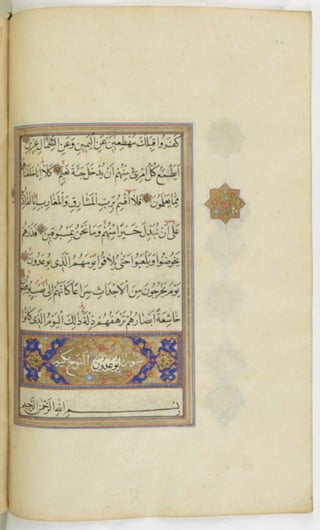 كفروا قبلك مهطعين عن اليمين وعن الشمال عزين
ايطمع كل امرئ منهم ان يدخل جنة نعيم كلا انا خلقناهم
مما يعلمون فلا اقسم برب المشارق والمغارب انا لقادرون
على ان نبدل خيرا منهم وما نحن بمسبوقين فذرهم
يخوضوا ويلعبوا حتى يلاقوا يومهم الذي يوعدون
يوم يخرجون من الاجداث سراعا كانهم الى نصب يوفضون
خاشعة ابصارهم ترهقهم ذلة ذلك اليوم الذي كانوا
يوعدون
بسم الله الرحمن الرحيم